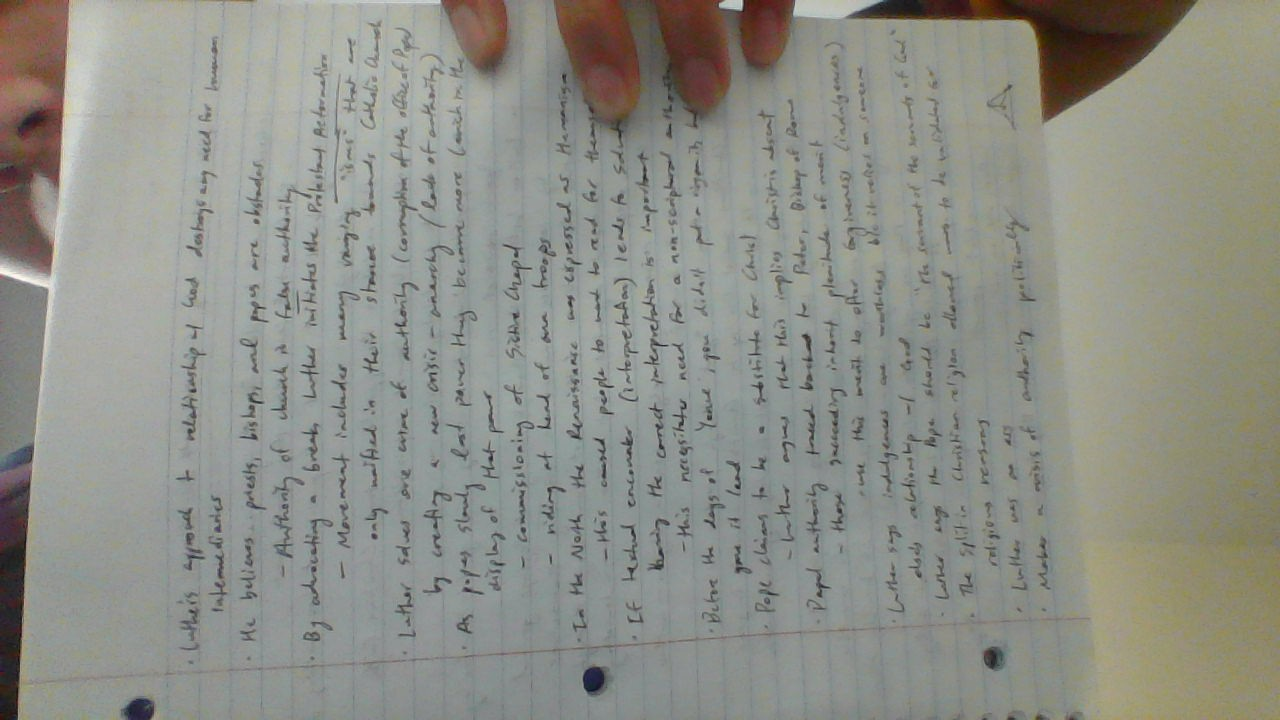 · Luther's approach to relationship w/ God destroys any need for human
intermediaries
· He believes priests, bishops, and popes are obstacles
- Authority of church is false authority
· By advocating a break, Luther initiates the Protestant Reformation
- Movement includes many varying "isms" that are
only unified in their stance towards Catholic Church
· Luther solves one crisis of authority (corruption of the office of Pope)
by creating a new crisis - anarchy (lack of authority)
· As popes slowly lost power they become more lavish in the
display of that power
- Commissioning of Sistine Chapel
- riding at head of own troops
· In the North the Renaissance was expressed as Humanism
- this caused people to want to read for
· If textual encounter (interpretation) leads to
having the correct interpretation is important
- this necessitates need for a non-scriptural
· Before the days of you didn't
gave it
· Pope claims to be a substitute for Christ
- Luther argues that this implies Christ is absent
· Papal authority traced back to Peter, Bishop of Rome
- those succeeding inherit plenitude of merit
· use this merit to offer forgiveness (indulgences)
· Luther says indulgences are worthless b/c it relied on someone
else's relationship w/ God
· Luther says the Pope should be "The servant of the servants of God"
· The split in Christian religion allowed wars to be validated for
religious reasons
· Luther was an ass
· Makes a crisis of authority politically